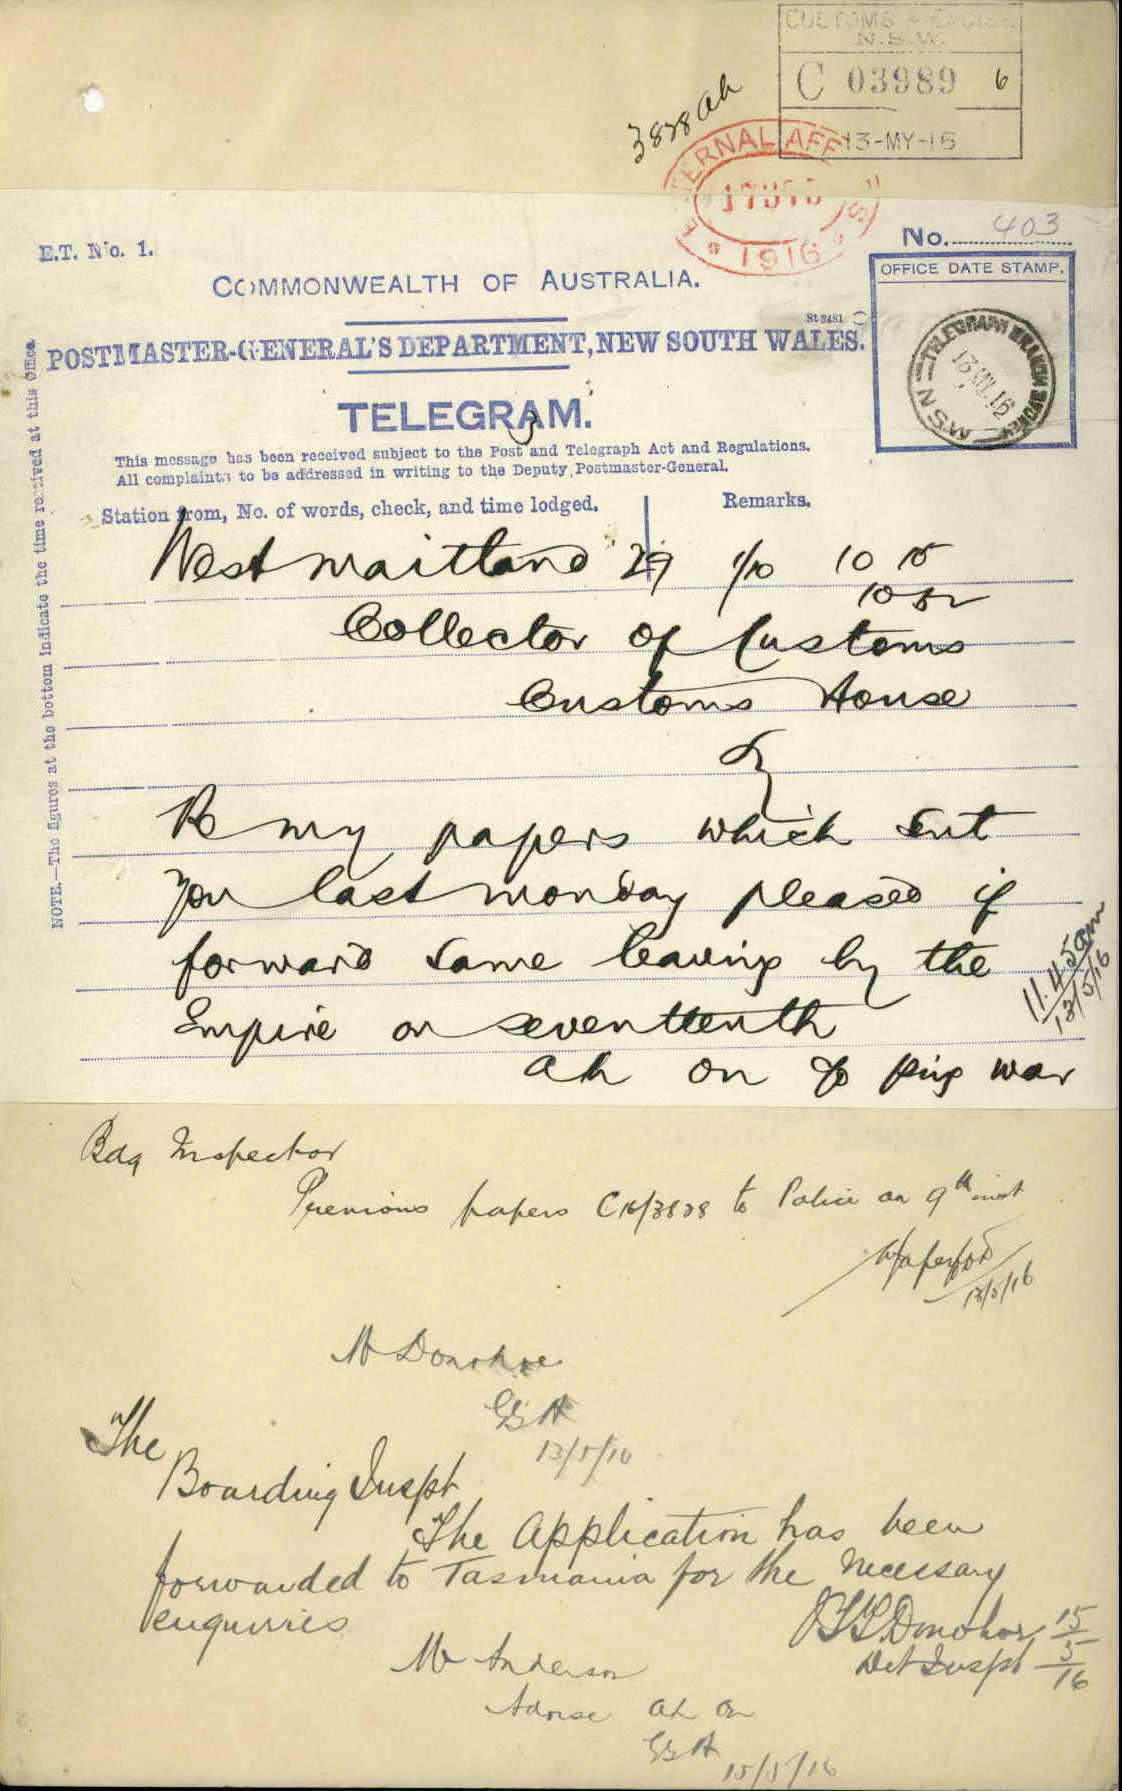 CUSTOMS & EXCISE
N.S.W.
C 03989 6
13-MY-16
3828 Ah
EXTERNAL AFF
1916
No. 403
E.T. No. 1.
COMMONWEALTH OF AUSTRALIA.
OFFICE DATE STAMP.
St 3481
POSTMASTER-GENERAL'S DEPARTMENT, NEW SOUTH WALES.
TELEGRAPH BRANCH SYDNEY
13 MY 16
N.S.W
TELEGRAM.
This message has been received subject to the Post and Telegraph Act and Regulations.
All complaints to be addressed in writing to the Deputy Postmaster-General.
Station from, No. of words, check, and time lodged. Remarks.
NOTE.—The figures at the bottom indicate the time received at this Office.
West Maitland 29 1/10 10 15
10 52
Collector of Customs
Customs House
Sy
Re my papers which sent
you last monday please if
forward same leaving by the
Empire on seventeenth
Ah On c/o Ping War
11.45am
13/5/16
Bdg Inspector
Previous papers C16/3828 to Police on 9th inst
13/5/16
Mr Donohoe
13/5/16
The
Boarding Inspt
The Application has been
forwarded to Tasmania for the necessary
enquiries
Donohoe 15/5/16
Det Inspt
Mr Anderson
Advise Ah On
15/5/16